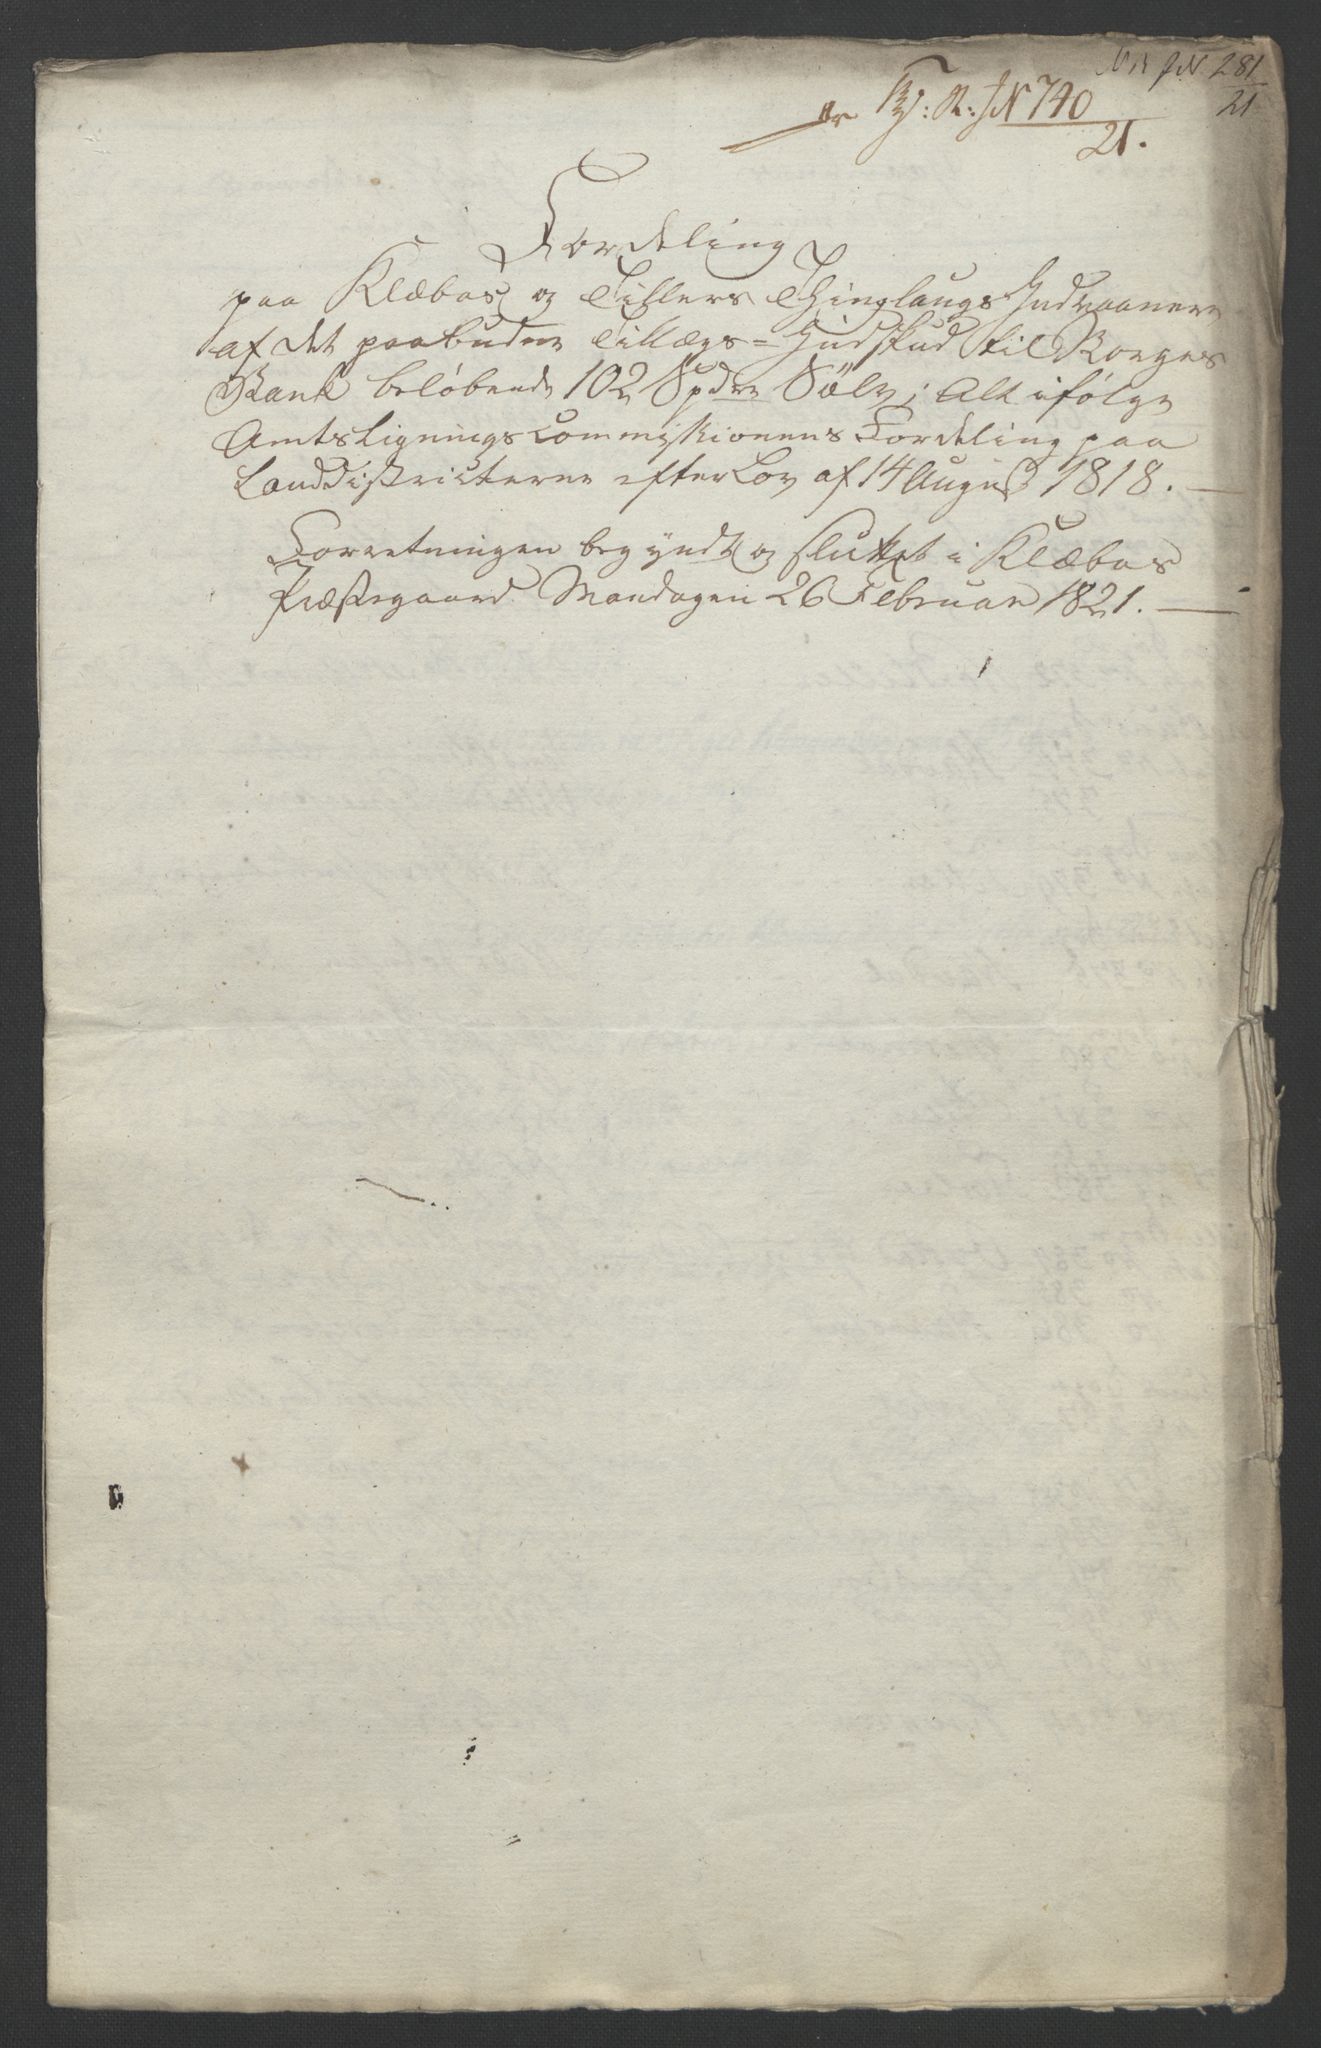 J.N. 281
21
J N 740
21.
Fordeling
paa Klæboe og Tillers Thinglaugs Indvaanere
af det paabudne Tillægs-Indskud til Norges
Bank beløbende 102 Spdr Sölv; Alt ifølge
Amts Ligningscommissionens Fordeling paa
Landdistricterne efter Lov af 14 August 1818. —
Forretningen begyndt og sluttet i Klæboe
Præstegaard Mandagen 26 Februar 1821. —